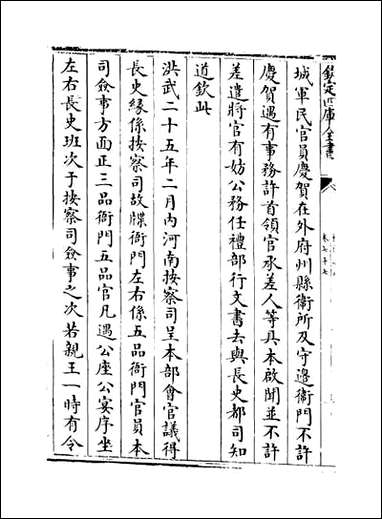 欽定四庫全書
城軍民官員慶賀在外府州縣衛所及守邊衛門不許
慶賀遇有事務許首領官承差人等具本啟聞並不許
差遣將官有妨公務任禮部行文書去與長史都司知
道欽此
洪武二十五年二月內河南按察司呈本部會官議得
長史縁係按察司故牒衙門左右係五品衙門官員本
司僉事方面正三品衙門五品官凡遇公座公宴序坐
左右長史班次于按察司僉事之次若親王一時有令